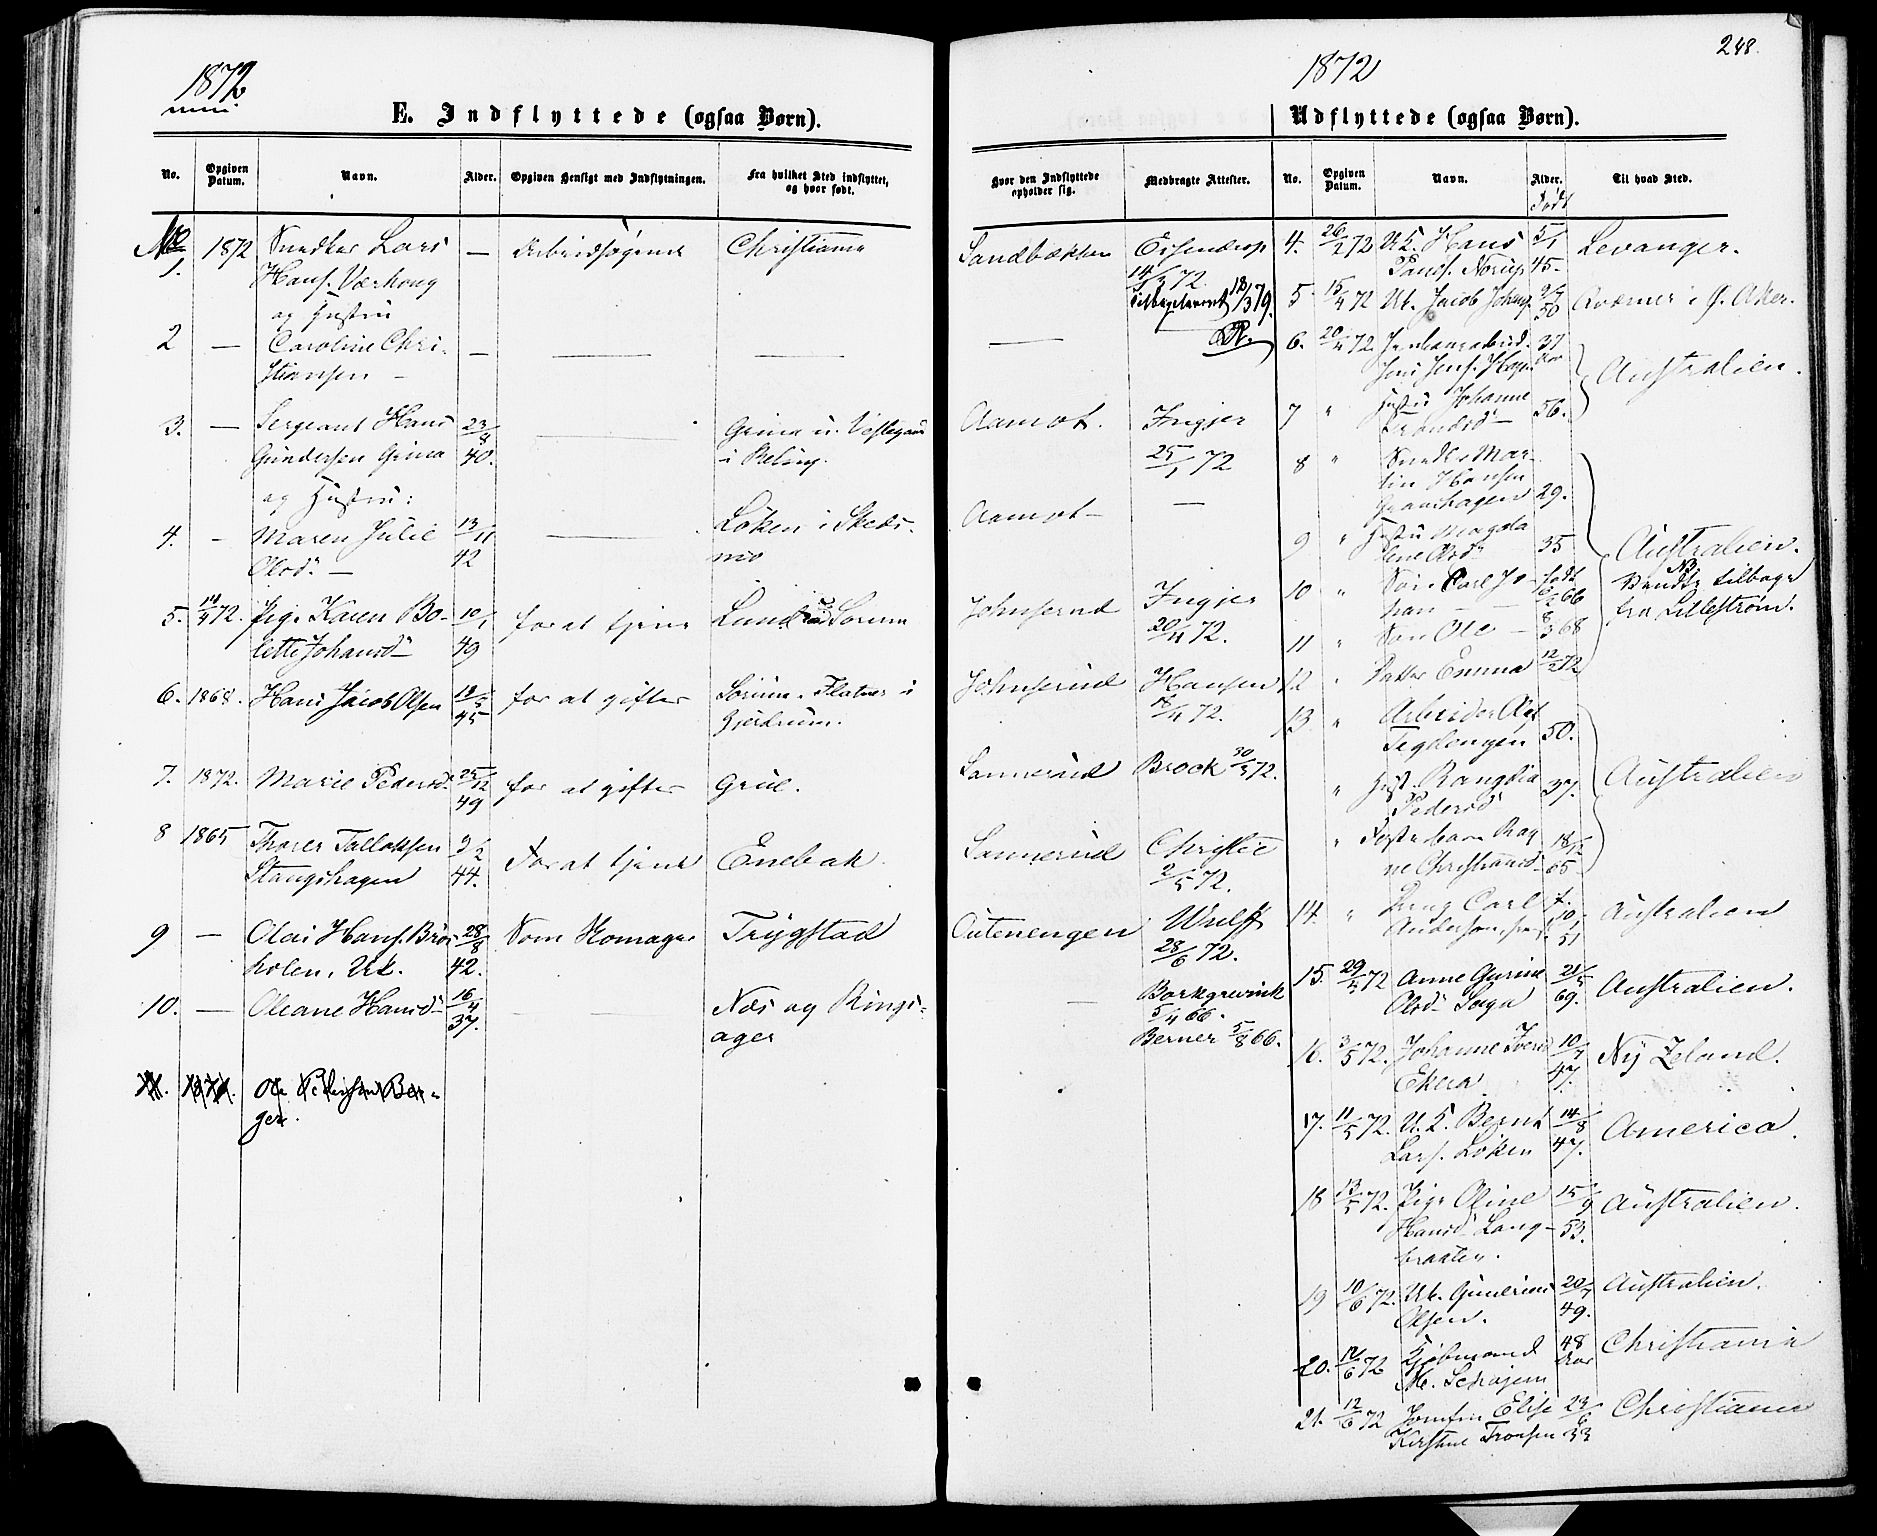 1872
E. Indflyttede (ogsaa Børn).
No.
Opgiven Datum.
Navn.
Alder.
Opgiven Hensigt med Indflytningen.
Fra hvilket Sted indflyttet,
og hvor født.
1. 1872 Snedker Lars — Arbeidsøgende Christiania
Hans. Værhoug
og Hustru
2 — Caroline Chri- —
stiansen —
3. — Sergeant Hans 23/8 Grina u. Vestegaard
Gundersen Grina 40. i Bæling.
og Hustru:
4. - Maren Julie 13/11 Løken i Skeds-
Olsd. — 42 mo
5. 14/4 72. Pige Karen Bo- 10/1 for at tjene Lund i Sørum
lette Johansd 49
6. 1868. Hans Jacob Olsen for at gifte Sørum. Flatner i
45 Gjerdrum.
7. 1872. Marie Pedersd. 25/12 for at gifte Grue.
49
8 1865 Thorer Tollaksen For at tjene Enebak
Stangshagen 44.
9 — Olai Hans. Brøs- 28/8 Som Trygstad
holen, Uk. 42.
10. — Oleane Hansd 16/4 Næs og Rings-
37. ager
11. 1871. Ole Pedersen Ber-
ger.
1872
248.
Udflyttede (ogsaa Børn).
Hvor den Indflyttede
opholder sig.
Medbragte Attester.
No.
Opgiven Datum.
Navn.
Alder.
Født
Til hvad Sted.
Sandbækken Essendrop
14/3 72.
tilbageleveret 18/3 79.
Aamot. Ingjer
25/1 72
Aamot — —
Johnserud Ingjer
20/4 72.
Johnserud Hansen
18/4 72.
Lannerud Brock 30/3 72.
Lannerud Christie
2/5 72.
Outenengen Wulff
28/6 72.
— Borkgrevink
5/4 66.
Berner 5/8 66.
4. 26/2 72 U.K. Hans 5/1 Levanger.
Pauls. Norup 45.
5 15/4 72 Uk. Jacob Johns. 9/7 Kværner i Ø. Aker.
50
6. 20/4 72. Jernbanearbeid. 37 Australien.
Jens Jens. Hagen Aar
7 " Hustru Johanne 56.
8 " Snedk. Mar-
tin Hansen
Granhagen 29.
9 " Hustru Magda Australien.
lene Olsd 35
10 " Søn Carl Jo- født NB Vendte tilbage
han — 66 fra Lillestrøm.
11 " Søn Ole — 8/3 68
12 " Datter Emma 12/2 72
13 " Arbeider Olof
Tegdengen 50.
" Hust. Rangdia 37. Australien
Pedersd
" Foster barn Rag 18/2
ne Christiansd 65
14. " Ung Carl f. 10/1 Australien
Andersen 51
15. 29/4 72 Anne Gurine 21/5 Australien.
Olsd 69.
16. 3/5 72. Johanne Iversd 10/7 Ny Zeland.
Ekern 47.
17. 11/5 72. U.K. Bernt 14/8 America.
Lars. Løken 47.
18 13/5 72. Pige Oline 15/9 Australien.
Hansd Lang- 53.
braaten.
19 10/6 72. Uk. Gunerius 20/7 Australien.
Olsen. 49.
20. 12/6 72 Kjøbmand 48 Christiania
M. Schøjen Aar
21. 12/6 72 Jomfru Elise 23/6 Christiania
Kirstine Tronsen 33